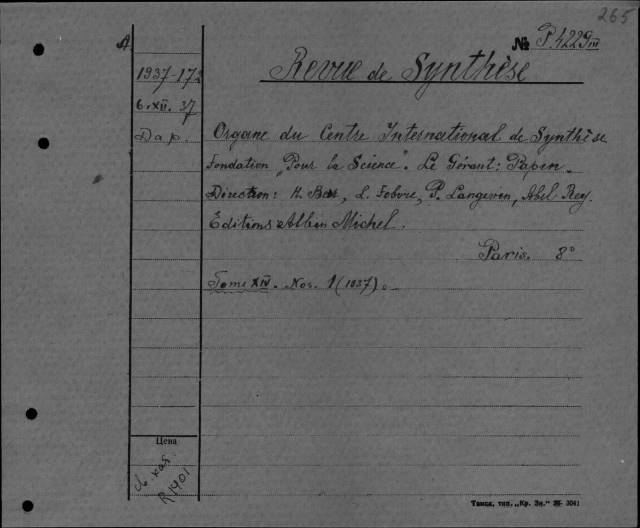 265
А
№ P.4229 III
Revue de Synthèse
1937-172
6.XII.37
Organe du Centre International de Synthèse
Дар.
Fondation „Pour la Science". Le Gérant: Papin.
Direction: H. Berr, L. Febvre, P. Langevin, Abel Rey.
Éditions Albin Michel.
Paris. 8°
Tome XIV. Nos. 1 (1937).
Цена
R1901
Томск, тип. „Кр. Зн." 3041